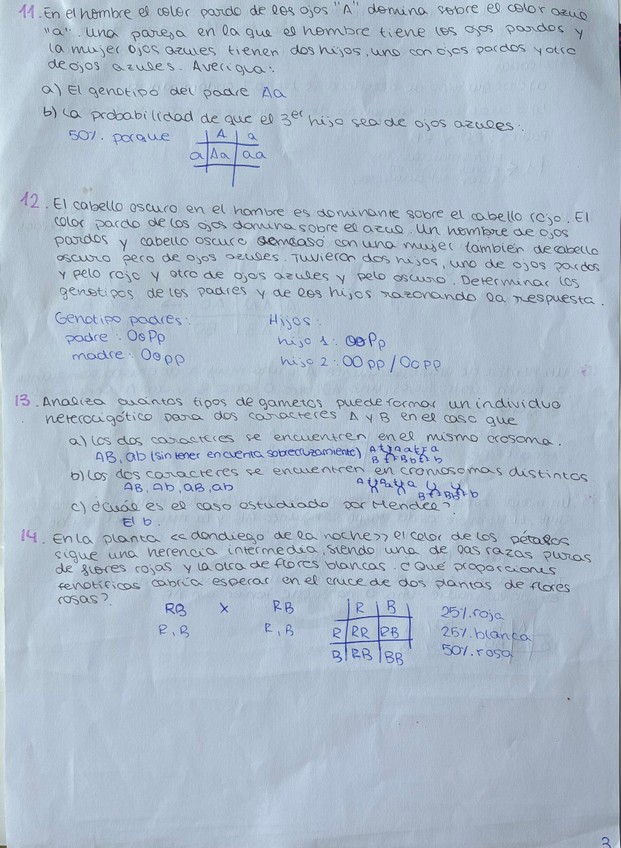 11. En el hombre el color pardo de los ojos "A" domina sobre el color azul
"a". Una pareja en la que el hombre tiene los ojos pardos y
la mujer ojos azules tienen dos hijos, uno con ojos pardos y otro
de ojos azules. Averigua:
a) El genotipo del padre Aa
b) La probabilidad de que el 3er hijo sea de ojos azules:
50%. porque
A a
a Aa aa
12. El cabello oscuro en el hombre es dominante sobre el cabello rojo. El
color pardo de los ojos domina sobre el azul. Un hombre de ojos
pardos y cabello oscuro con una mujer también de cabello
oscuro pero de ojos azules. Tuvieron dos hijos, uno de ojos pardos
y pelo rojo y otro de ojos azules y pelo oscuro. Determinar los
genotipos de los padres y de los hijos razonando la respuesta.
Genotipo padres: Hijos:
padre: OoPp hijo 1: ooPp
madre: Oopp hijo 2: OOpp/Oopp
13. Analiza cuántos tipos de gametos puede formar un individuo
heterocigótico para dos caracteres A y B en el caso que
a) los dos caracteres se encuentren en el mismo crosoma.
AB, ab (sin tener en cuenta sobrecruzamiento) A A a a
B B b b
b) los dos caracteres se encuentren en cromosomas distintos
AB, Ab, aB, ab A A a a B B b b
c) ¿cuál es el caso estudiado por Mendel?
El b.
14. En la planta <<dondiego de la noche>> el color de los pétalos
sigue una herencia intermedia, siendo una de las razas puras
de flores rojas y la otra de flores blancas. ¿Qué proporciones
fenotíficas cabría esperar en el cruce de dos plantas de flores
rosas?
RB X RB
R, B R, B
R B
R RR RB
B RB BB
25%. roja
25%. blanca
50%. rosa
3